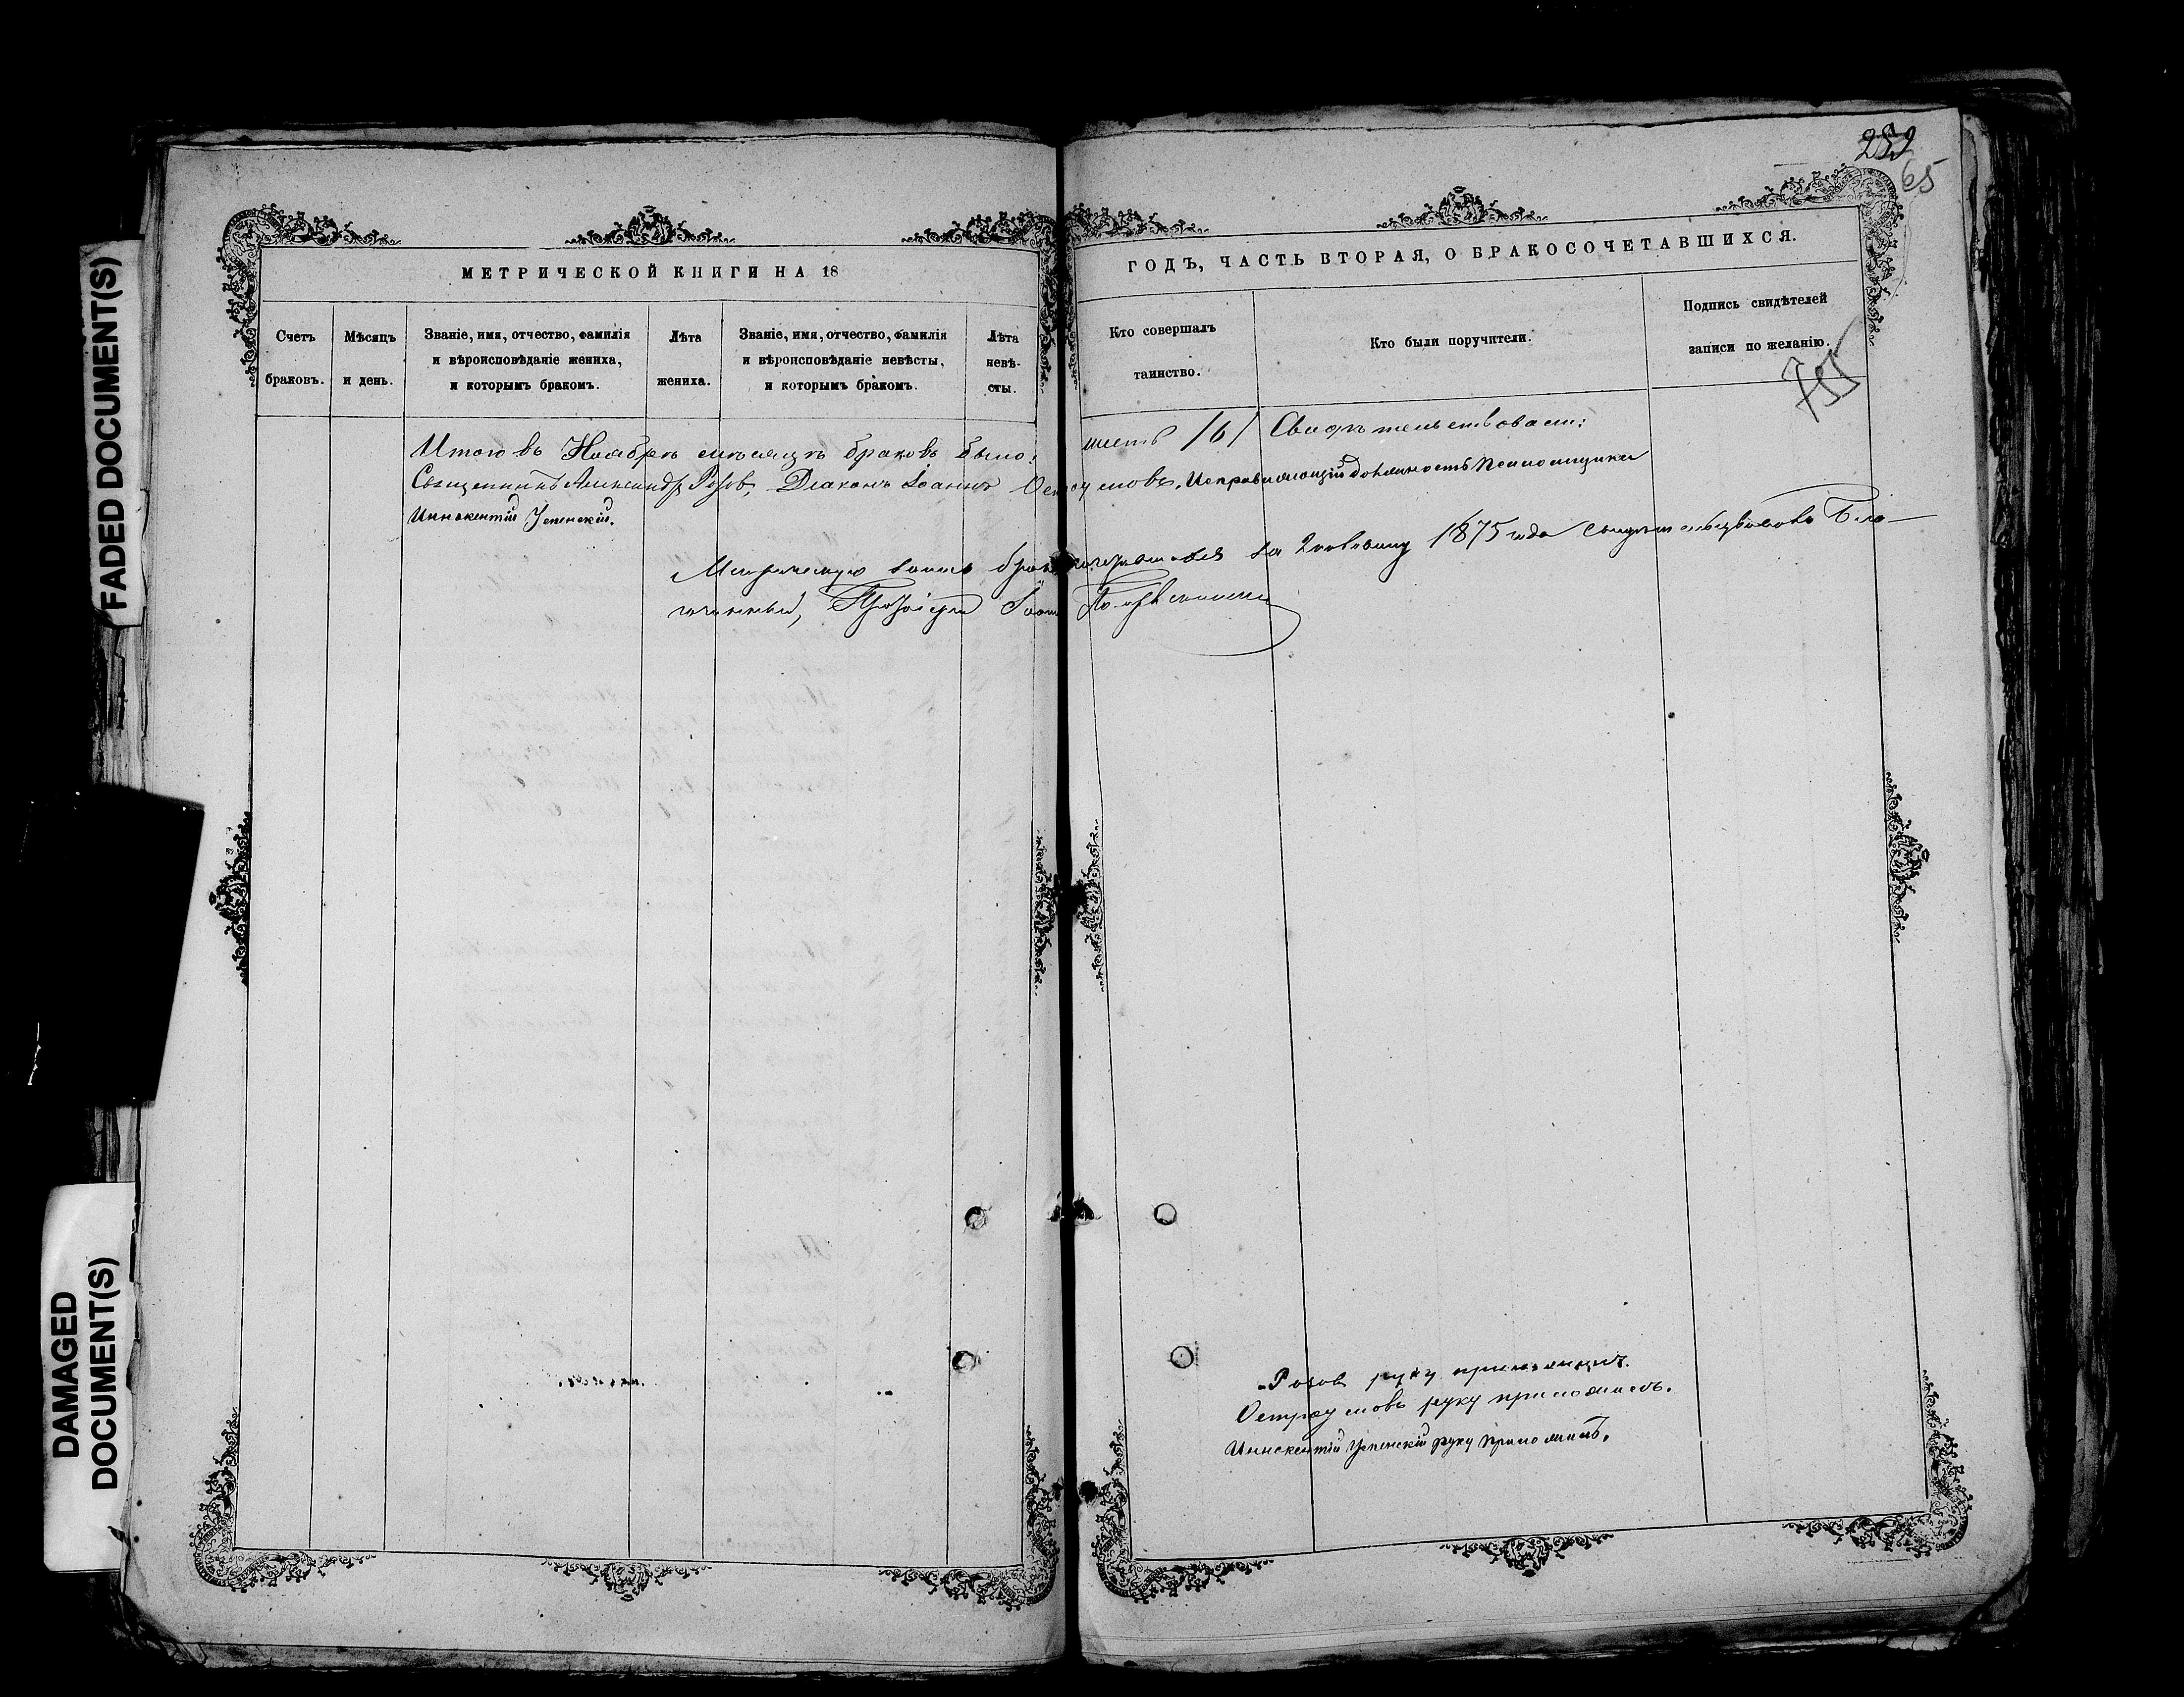 259
65
МЕТРИЧЕСКОЙ КНИГИ НА 18
ГОДЪ, ЧАСТЬ ВТОРАЯ, О БРАКОСОЧЕТАВШИХСЯ.
Счетъ браковъ.
Мѣсяцъ и день.
Званіе, имя, отчество, фамилія
и вѣроисповѣданіе жениха,
и которымъ бракомъ.
Лѣта жениха.
Званіе, имя, отчество, фамилія
и вѣроисповѣданіе невѣсты,
и которымъ бракомъ.
Лѣта невѣ-
сты.
Кто совершалъ
таинство.
Кто были поручители.
Подпись свидѣтелей
записи по желанію.
755
Итого въ Ноябрѣ мѣсяцѣ браковъ было: шесть /6/ Свидѣтельствовали:
Священникъ Александръ Розовъ, Діаконъ Іоаннъ Остроумовъ. Исправляющій должность Псаломщика
Иннокентій Успенскій.
Метрическую 2 половину 1875 года Бла-
гочинный, Протоіерей Іоаннъ
Розовъ руку приложилъ.
Остроумовъ руку приложилъ.
Иннокентій Успенскій руку приложилъ.
FADED DOCUMENT(S)
DAMAGED
DOCUMENT(S)